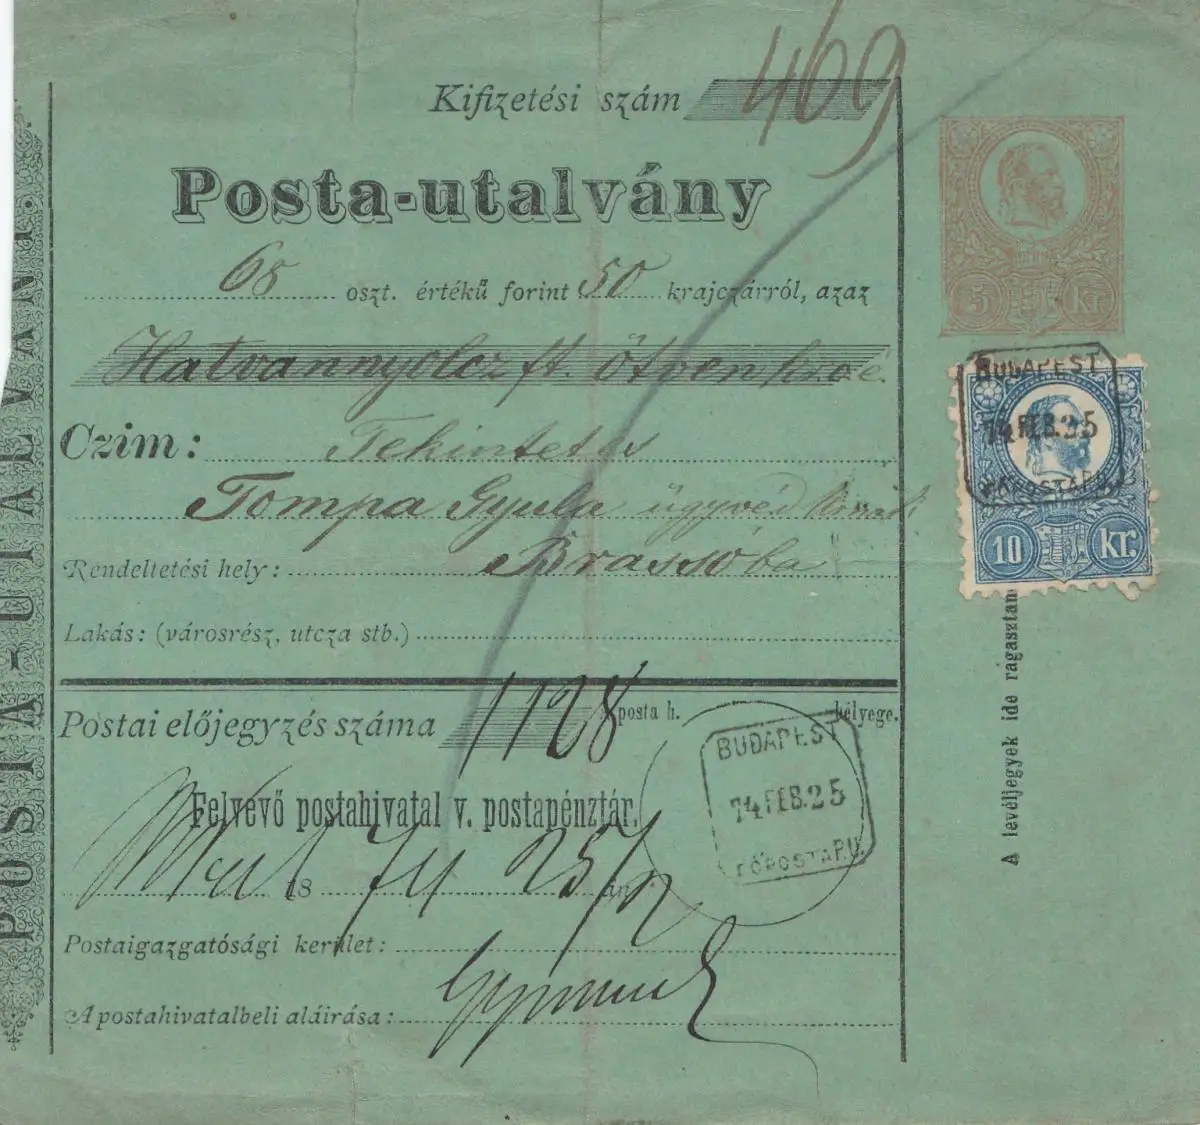 Kifizetési szám 469
Posta-utalvány
68 oszt. értékű forint 50 krajczárról, azaz
Hatvannyolcz ft. ötven kr. o. é.
Czim: Tekintetes
Tompa Gyula ügyvéd
Rendeltetési hely: Brassóba
Lakás: (városrész, utcza stb.)
Postai előjegyzés száma 1128
posta h. bélyege.
Felvevő postahivatal v. postapénztár.
18 74 25/2 án
Postaigazgatósági kerület:
A postahivatalbeli aláirása:
POSTA-UTALVÁNY.
5 kr.
BUDAPEST
74 FEB. 25
10 kr.
A levéljegyek ide ragasztan
BUDAPEST
74 FEB. 25
FŐPOSTA P.U.